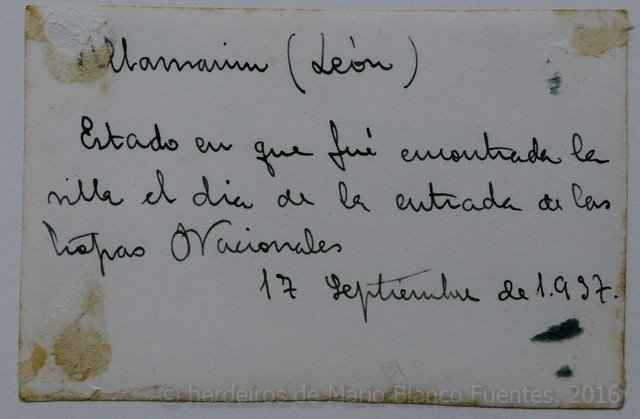 Villamanin (León)
Estado en que fué encontrada la
villa el dia de la entrada de las
tropas Nacionales
17 Septiembre de 1.937.
© herdeiros de Mario Blanco Fuentes. 2016